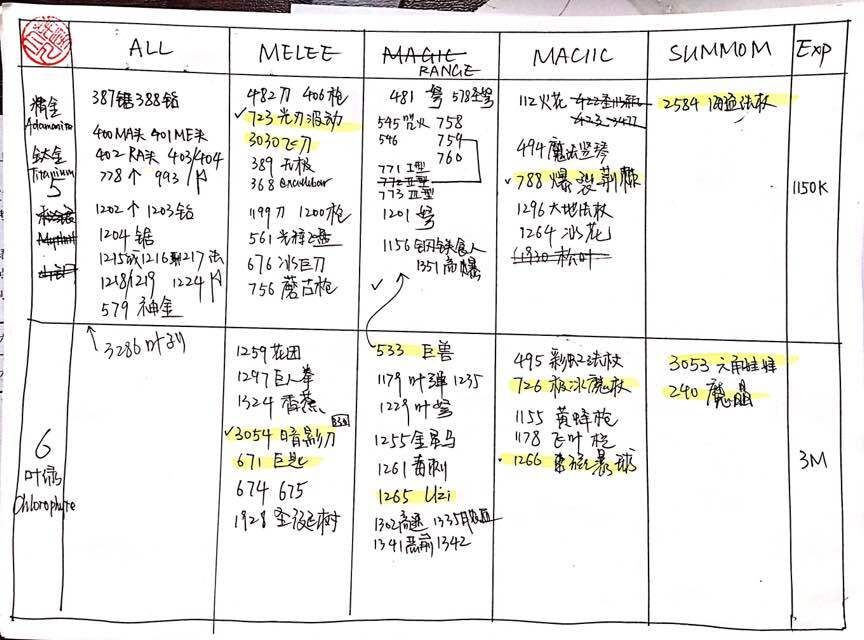 ALL
MELEE
MAGIC
RANGE
MAGIIC
SUMMOM
Exp
精金
Adamanite
钛金
Titanium
5
387锯 388钻
400MA头 401ME头
402 RA头 403/404
778↑ 993
1202↑ 1203钻
1204锯
1215战1216鞘1217法
1218/1219 1224
579 神金
482刀 406枪
✓723光刃波动
3030飞刀
389 无极
368 excalibur
1199刀 1200枪
561光棱飞盘
676冰巨刀
756蘑古枪
481 弩 578圣弩
545咒火 758
546 759
760
771 I型
772 II型
773 III型
1201弩
1156钢铁食人
1351高爆
✓
112火花
494魔法竖琴
✓788爆裂荆棘
1296大地法杖
1264冰花
1930松叶
2584海盗法杖
1150K
3286叶刘
6
叶绿
Chlorophyte
1259花团
1297巨人拳
1324香蕉
✓3054暗影刀
671巨匙
674 675
1928圣诞树
533巨兽
1179叶弹 1235
1229叶弩
1255金星马
1261毒刺
1265 Uzi
1302高速
1342
495彩虹法杖
726极冰魔杖
1155黄蜂枪
1178飞叶枪
1266
3053六角
240
3M